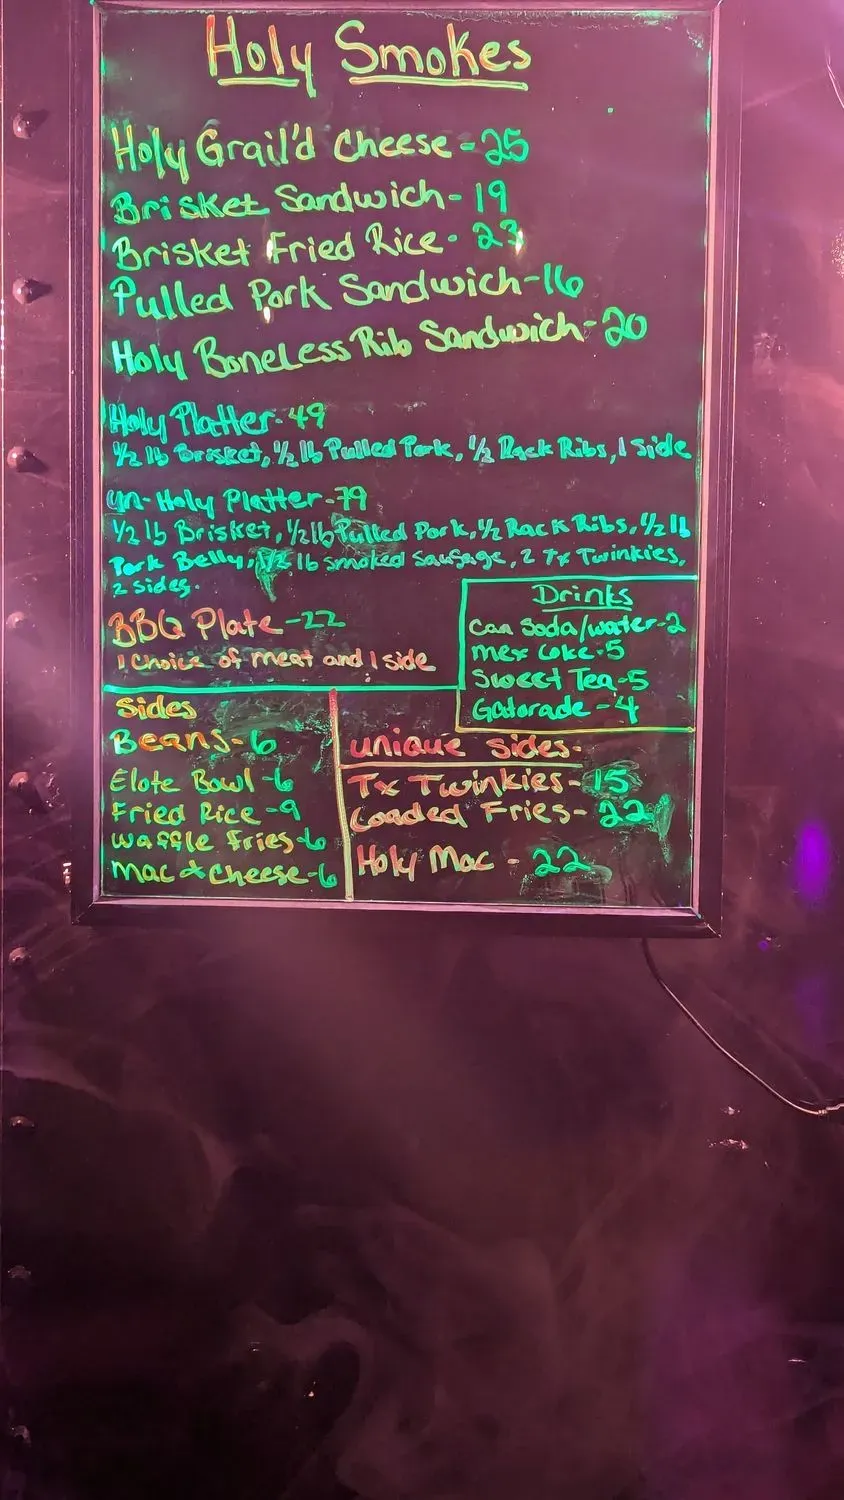 Holy Smokes
Holy Grail'd Cheese - 25
Brisket Sandwich - 19
Brisket Fried Rice - 23
Pulled Pork Sandwich - 16
Holy Boneless Rib Sandwich - 20
Holy Platter - 49
1/2 lb Brisket, 1/2 lb Pulled Pork, 1/2 Rack Ribs, 1 Side
un-Holy Platter - 79
1/2 lb Brisket, 1/2 lb Pulled Pork, 1/2 Rack Ribs, 1/2 lb
Pork Belly, 1/2 lb Smoked Sausage, 2 Tx Twinkies,
2 Sides.
BBQ Plate - 22
1 Choice of meat and 1 side
Drinks
Can Soda/water - 2
mex Coke - 5
Sweet Tea - 5
Gatorade - 4
Sides
Beans - 6
Elote Bowl - 6
Fried Rice - 9
Waffle Fries - 6
Mac & Cheese - 6
unique sides -
Tx Twinkies - 15
Loaded Fries - 22
Holy Mac - 22